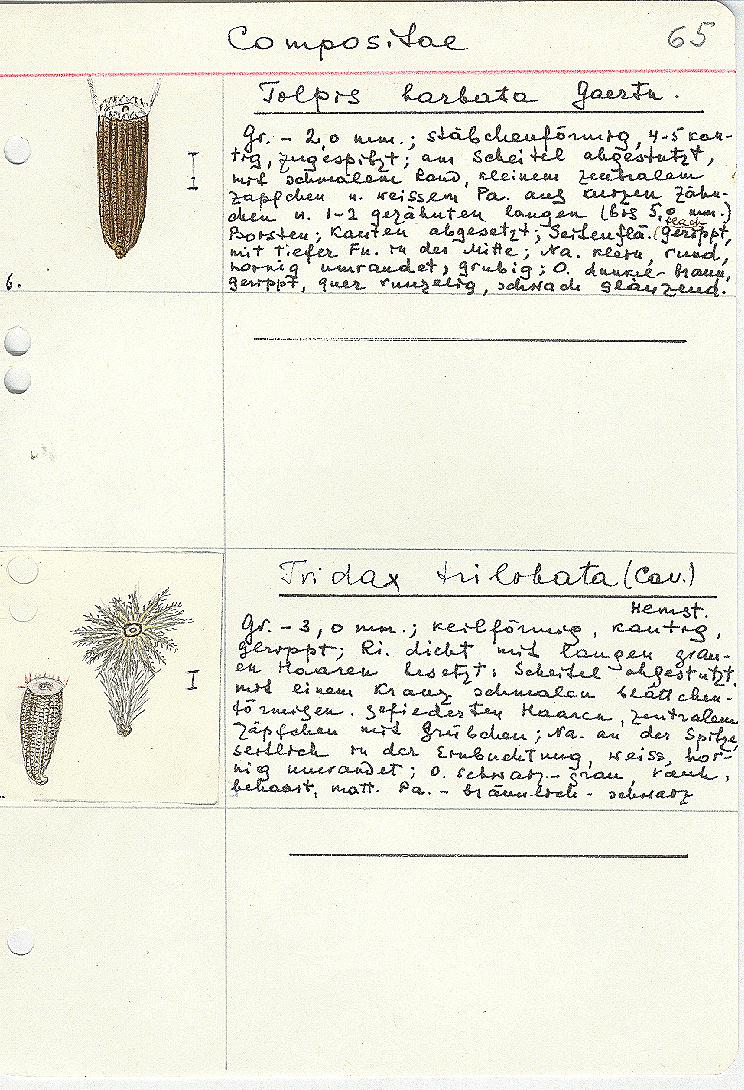 Compositae 65
Tolpis barbata Gaertn.
Gr. - 2,0 mm.; stäbchenförmig, 4-5 kan-
tig, zugespitzt; am Scheitel abgestutzt,
mit schmalem Rand, kleinem zentralem
Zäpfchen u. weissem Pa. aus kurzen Zähn-
chen u. 1-2 gezähnten langen (bis 5,0 mm.)
Borsten; Kanten abgesetzt; Seitenflä. (flach) gerippt,
mit tiefer Fu. in der Mitte; Na. klein, rund,
hornig umrandet, grubig; O. dunkel-braun,
gerippt, quer runzelig, schwach glänzend.
6.
Tridax trilobata (Cav.)
Hemsl.
Gr. - 3,0 mm.; keilförmig, kantig,
gerippt; Ri. dicht mit langen grau-
en Haaren besetzt; Scheitel abgestutzt,
mit einem Kranz schmalen blättchen-
förmigen, gefiederten Haaren, zentralem
Zäpfchen mit Grübchen; Na. an der Spitze,
seitlich in der Einbuchtung, weiss, hor-
nig umrandet; O. schwarz-grau, rauh,
behaart, matt. Pa. - bräunlich-schwarz